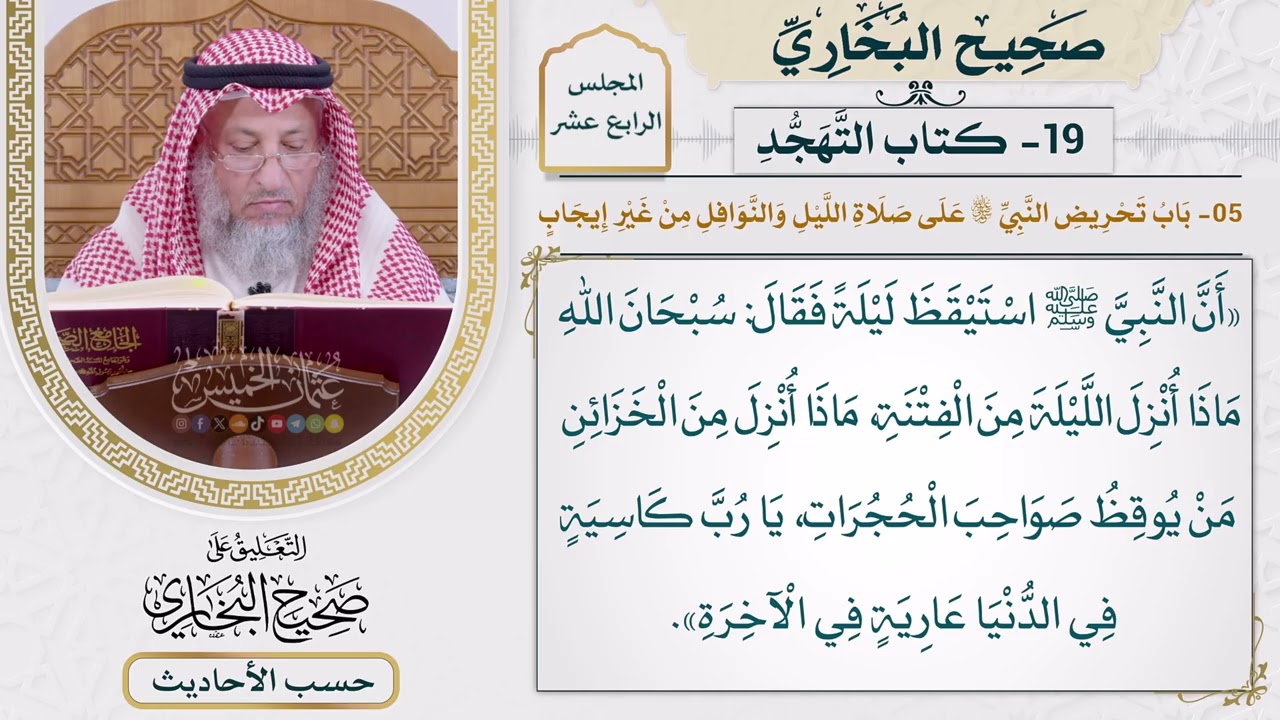 صَحِيح البُخَارِيِّ
19- كتاب التَّهَجُّدِ
المجلس
الرابع عشر
05- بَابُ تَحْرِيضِ النَّبِيِّ ﷺ عَلَى صَلَاةِ اللَّيْلِ وَالنَّوَافِلِ مِنْ غَيْرِ إِيجَابٍ
«أَنَّ النَّبِيَّ ﷺ اسْتَيْقَظَ لَيْلَةً فَقَالَ: سُبْحَانَ اللهِ
مَاذَا أُنْزِلَ اللَّيْلَةَ مِنَ الْفِتْنَةِ، مَاذَا أُنْزِلَ مِنَ الْخَزَائِنِ
مَنْ يُوقِظُ صَوَاحِبَ الْحُجُرَاتِ، يَا رُبَّ كَاسِيَةٍ
فِي الدُّنْيَا عَارِيَةٍ فِي الْآخِرَةِ».
الجامع
عثمان الخميس
التَّعْلِيقُ عَلَى
صَحِيحُ الْبُخَارِيِّ
حسب الأحاديث